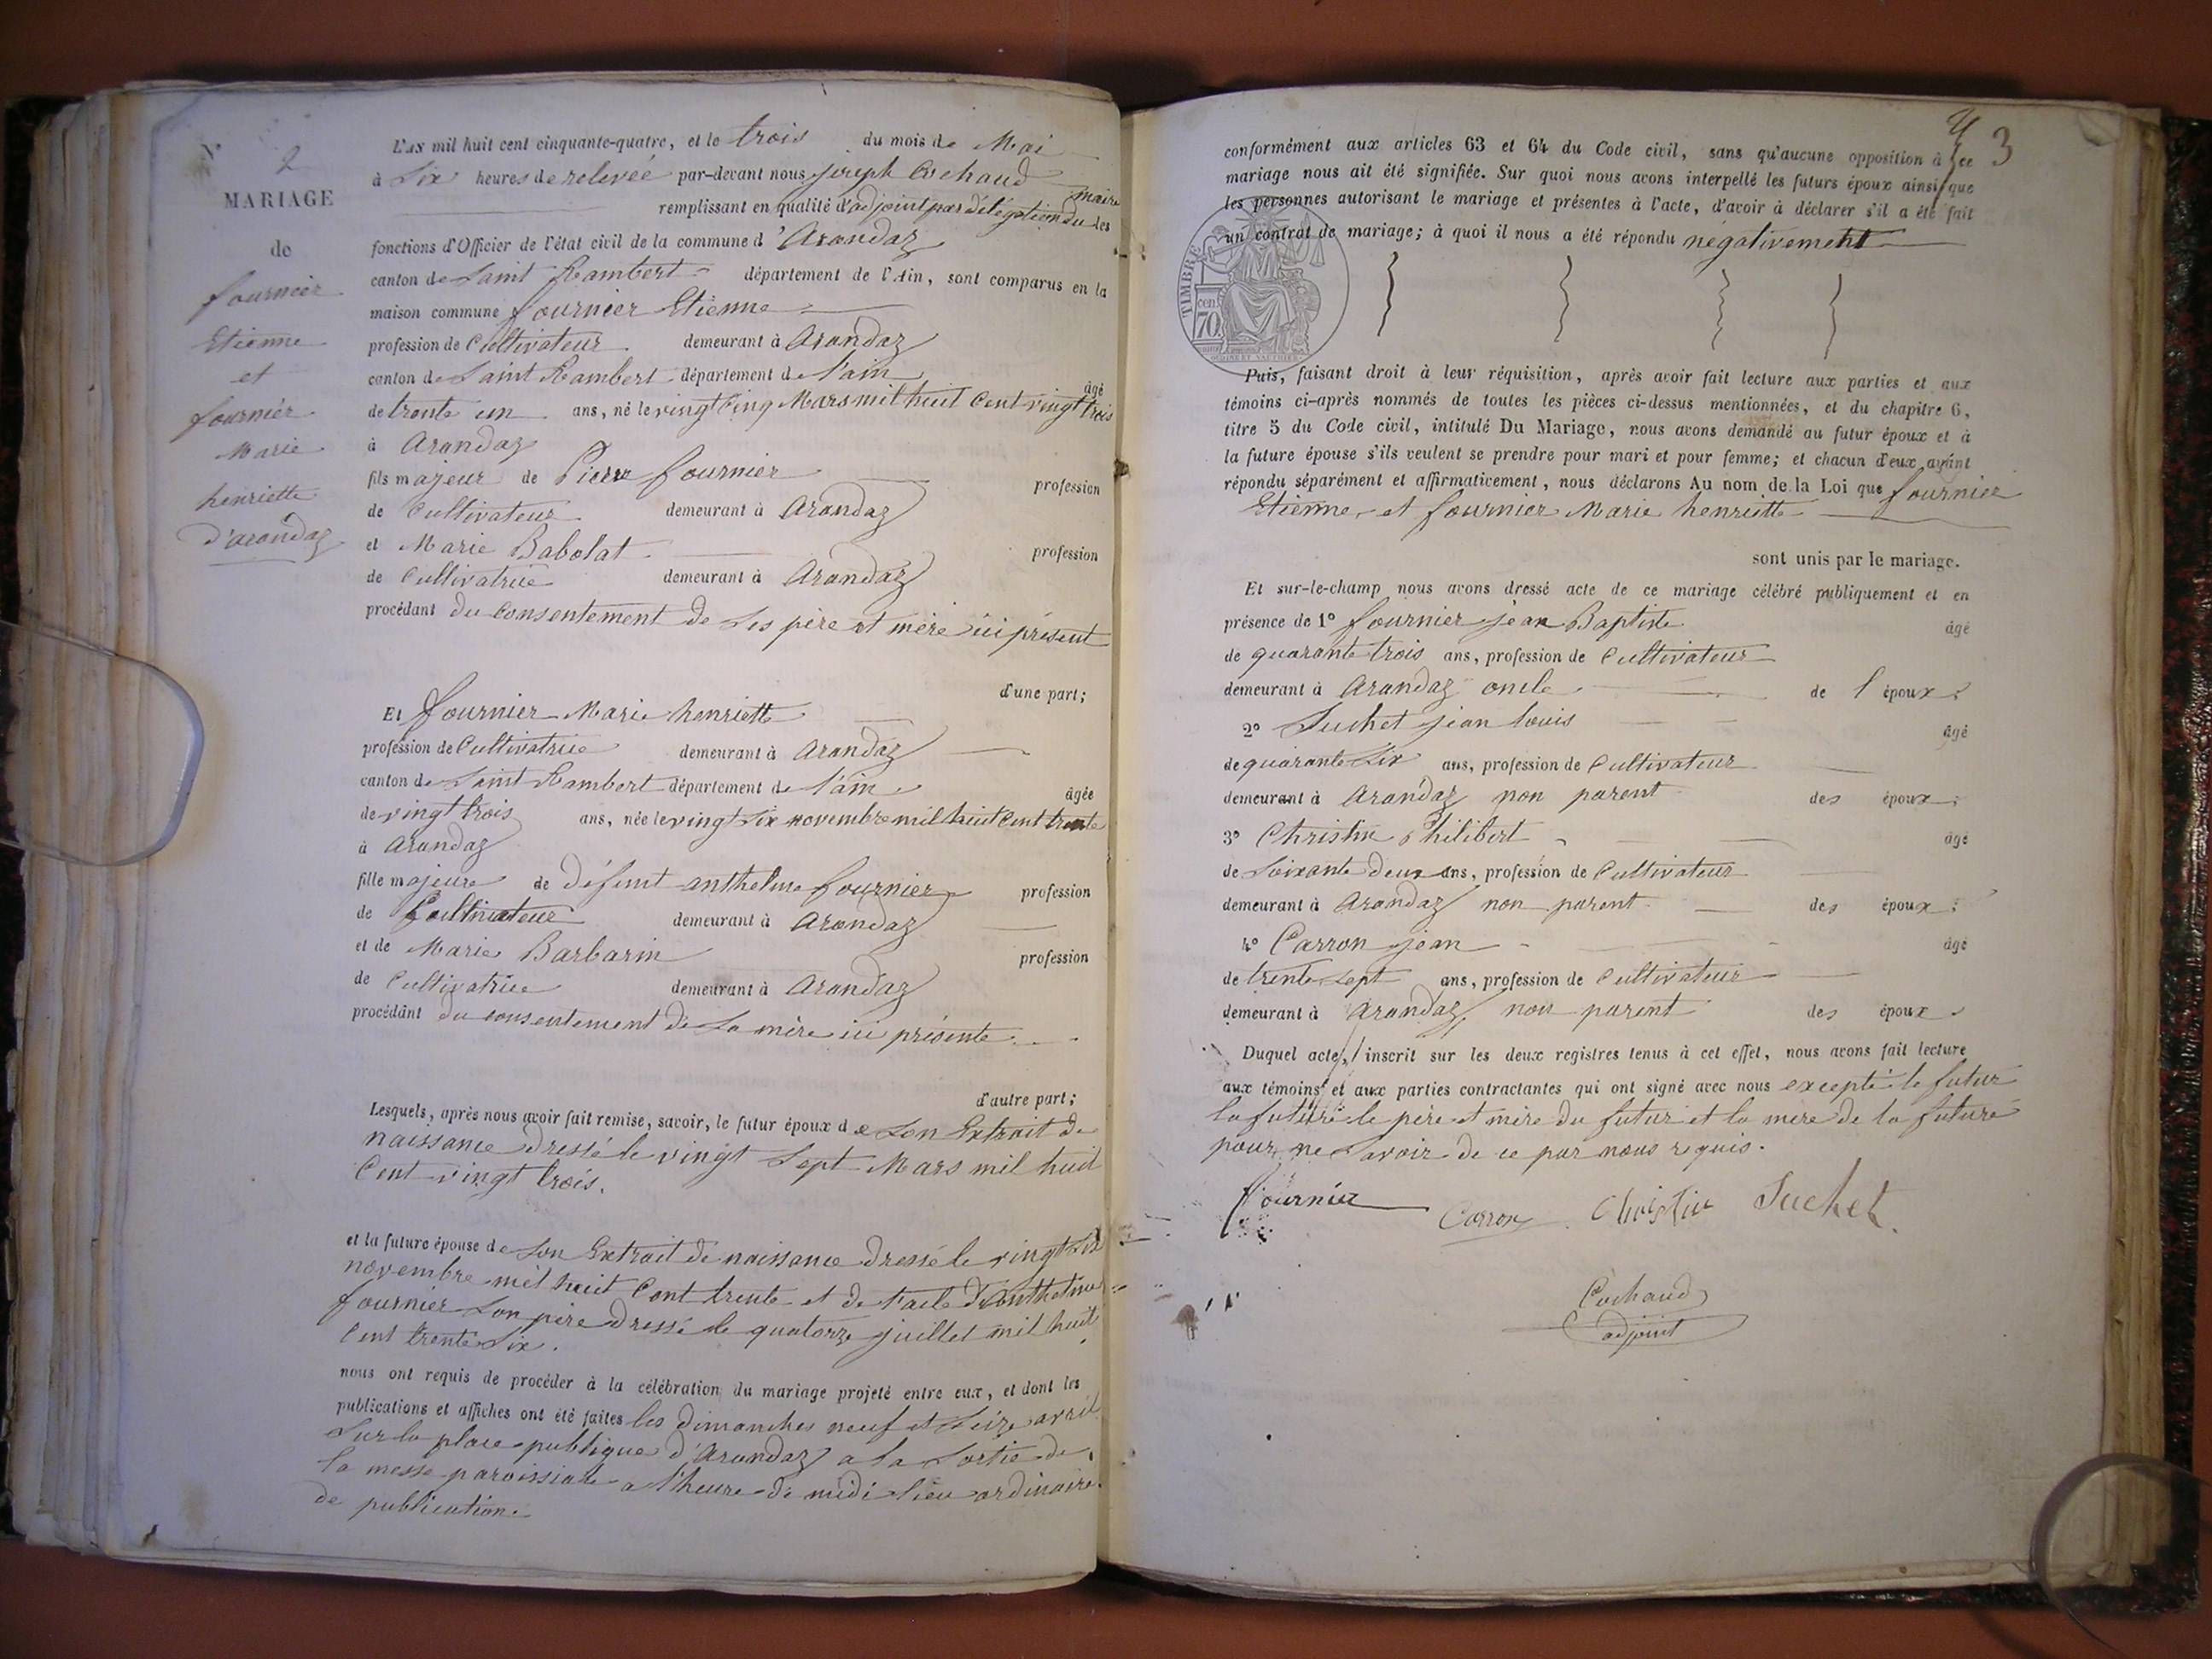 N° 2
MARIAGE
de
fournier
Etienne
et
fournier
Marie
henriette
d'arandaz
L'AN mil huit cent cinquante-quatre, et le trois du mois de Mai
à Six heures de relevée par-devant nous joseph Cochaud
remplissant en qualité d'adjoint par délégation du maire les
fonctions d'Officier de l'état civil de la commune d'Arandaz
canton de Saint Rambert département de l'Ain, sont comparus en la
maison commune fournier Etienne
profession de Cultivateur demeurant à Arandaz
canton de Saint Rambert département de l'ain âgé
de trente un ans, né le vingt Cinq Mars mil huit Cent vingt trois
à Arandaz
fils majeur de Pierre fournier profession
de Cultivateur demeurant à Arandaz
et Marie Babolat profession
de Cultivatrice demeurant à Arandaz
procédant du consentement de Ses père et mère ici présent
d'une part;
Et fournier Marie henriette
profession de Cultivatrice demeurant à Arandaz
canton de Saint Rambert département de l'ain âgée
de vingt trois ans, née le vingt Six novembre mil huit Cent trente
à Arandaz
fille majeure de défunt anthelme fournier profession
de Cultivateur demeurant à Arandaz
et de Marie Barbarin profession
de Cultivatrice demeurant à Arandaz
procédant du consentement de Sa mère ici présente
d'autre part;
Lesquels, après nous avoir fait remise, savoir, le futur époux de Son Extrait de
naissance dressé le vingt Sept Mars mil huit
Cent vingt trois.
et la future épouse de Son Extrait de naissance dressé le vingt Six
novembre mil huit Cent trente et de l'acte d'Anthelme
fournier Son père dressé le quatorze juillet mil huit
Cent trente Six.
nous ont requis de procéder à la célébration du mariage projeté entre eux, et dont les
publications et affiches ont été faites les dimanches neuf et Seize avril
Sur la place publique d'Arandaz a la Sortie de
la messe paroissiale a l'heure de midi lieu ordinaire
de publication.
3
conformément aux articles 63 et 64 du Code civil, sans qu'aucune opposition à ce
mariage nous ait été signifiée. Sur quoi nous avons interpellé les futurs époux ainsi que
les personnes autorisant le mariage et présentes à l'acte, d'avoir à déclarer s'il a été fait
un contrat de mariage; à quoi il nous a été répondu négativement
TIMBRE
cen.
70
Puis, faisant droit à leur réquisition, après avoir fait lecture aux parties et aux
témoins ci-après nommés de toutes les pièces ci-dessus mentionnées, et du chapitre 6,
titre 5 du Code civil, intitulé Du Mariage, nous avons demandé au futur époux et à
la future épouse s'ils veulent se prendre pour mari et pour femme; et chacun d'eux ayant
répondu séparément et affirmativement, nous déclarons Au nom de la Loi que fournier
Etienne et fournier Marie henriette
sont unis par le mariage.
Et sur-le-champ nous avons dressé acte de ce mariage célébré publiquement et en
présence de 1° fournier jean Baptiste âgé
de quarante trois ans, profession de Cultivateur
demeurant à Arandaz oncle de l'époux;
2° Suchet jean louis âgé
de quarante Six ans, profession de Cultivateur
demeurant à Arandaz non parent des époux;
3° Christin Philibert âgé
de Soixante deux ans, profession de Cultivateur
demeurant à Arandaz non parent des époux;
4° Carron jean âgé
de trente Sept ans, profession de Cultivateur
demeurant à Arandaz non parent des époux.
Duquel acte, inscrit sur les deux registres tenus à cet effet, nous avons fait lecture
aux témoins et aux parties contractantes qui ont signé avec nous excepté le futur
la future le père et mère du futur et la mère de la future
pour ne Savoir de ce par nous requis.
fournier Carron Christin Suchet
Cochaud
adjoint